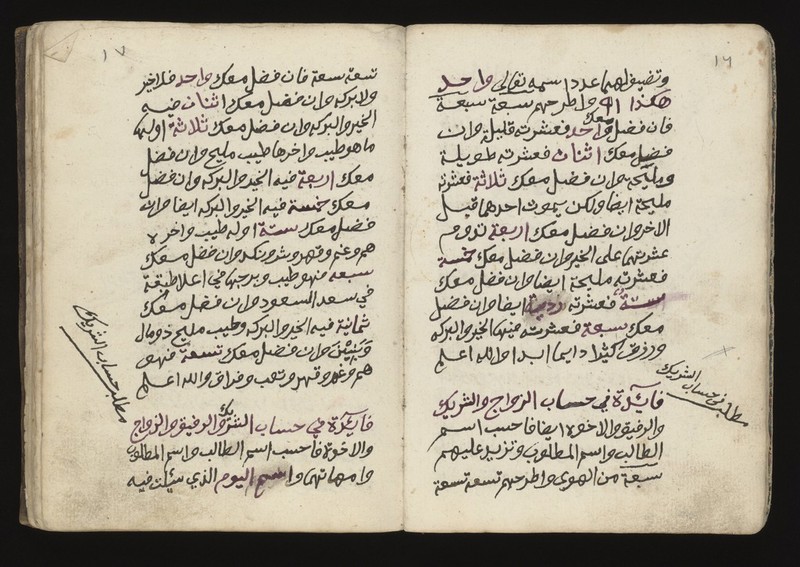 ١٦
وتضيف لهما عدد اسمه تعالى واحد
هكذا ١٩ واطرحهم سبعة سبعة
فان فضل معك واحد فعشرته قليلة وان
فضل معك اثنان فعشرته طويلة
ومليحة وان فضل معك ثلاثة فعشرته
مليحة ايضا ولكن يموت احدهما قبل
الاخر وان فضل معك اربعة تدوم
عشرتهما على الخير وان فضل معك خمسة
فعشرته مليحة ايضا وان فضل معك
ستة فعشرته ردية ايضا وان فضل
معك سبعة فعشرته فيها الخير والبركه
ورزق كثير دايما ابدا والله اعلم
مطلب في حساب الشريك
فايدة في حساب الزواج والشريك
والرفيق والاخوة ايضا فاحسب اسم
الطالب واسم المطلوب وتزيد عليهم
سبعة من الهوى واطرحهم تسعة تسعة
١٧
تسعة تسعة فان فضل معك واحد فلا خير
ولا بركه وان فضل معك اثنان فيه
الخير والبركه وان فضل معك ثلاثة اولها
ما هو طيب واخرها طيب مليح وان فضل
معك اربعة فيه الخير والبركة وان فضل
معك خمسة فيه الخير والبركه ايضا وان
فضل معك ستة اوله طيب واخره
هم وغم وقهر وشر ونكد وان فضل معك
سبعه فهو طيب وبرجها في اعلا طبقة
في سعد السعود وان فضل معك
ثمانية فيه الخير والبركه وطيب مليح ذو مال
وبنين وان فضل معك تسعة فهو
هم وغم وقهر وتعب وفراق والله اعلم
مطلب حساب الشريك
فايدة في حساب الشريك والرفيق والزواج
والاخوة فاحسب اسم الطالب واسم المطلوب
وامهاتهما واسم اليوم الذي سيلت فيه